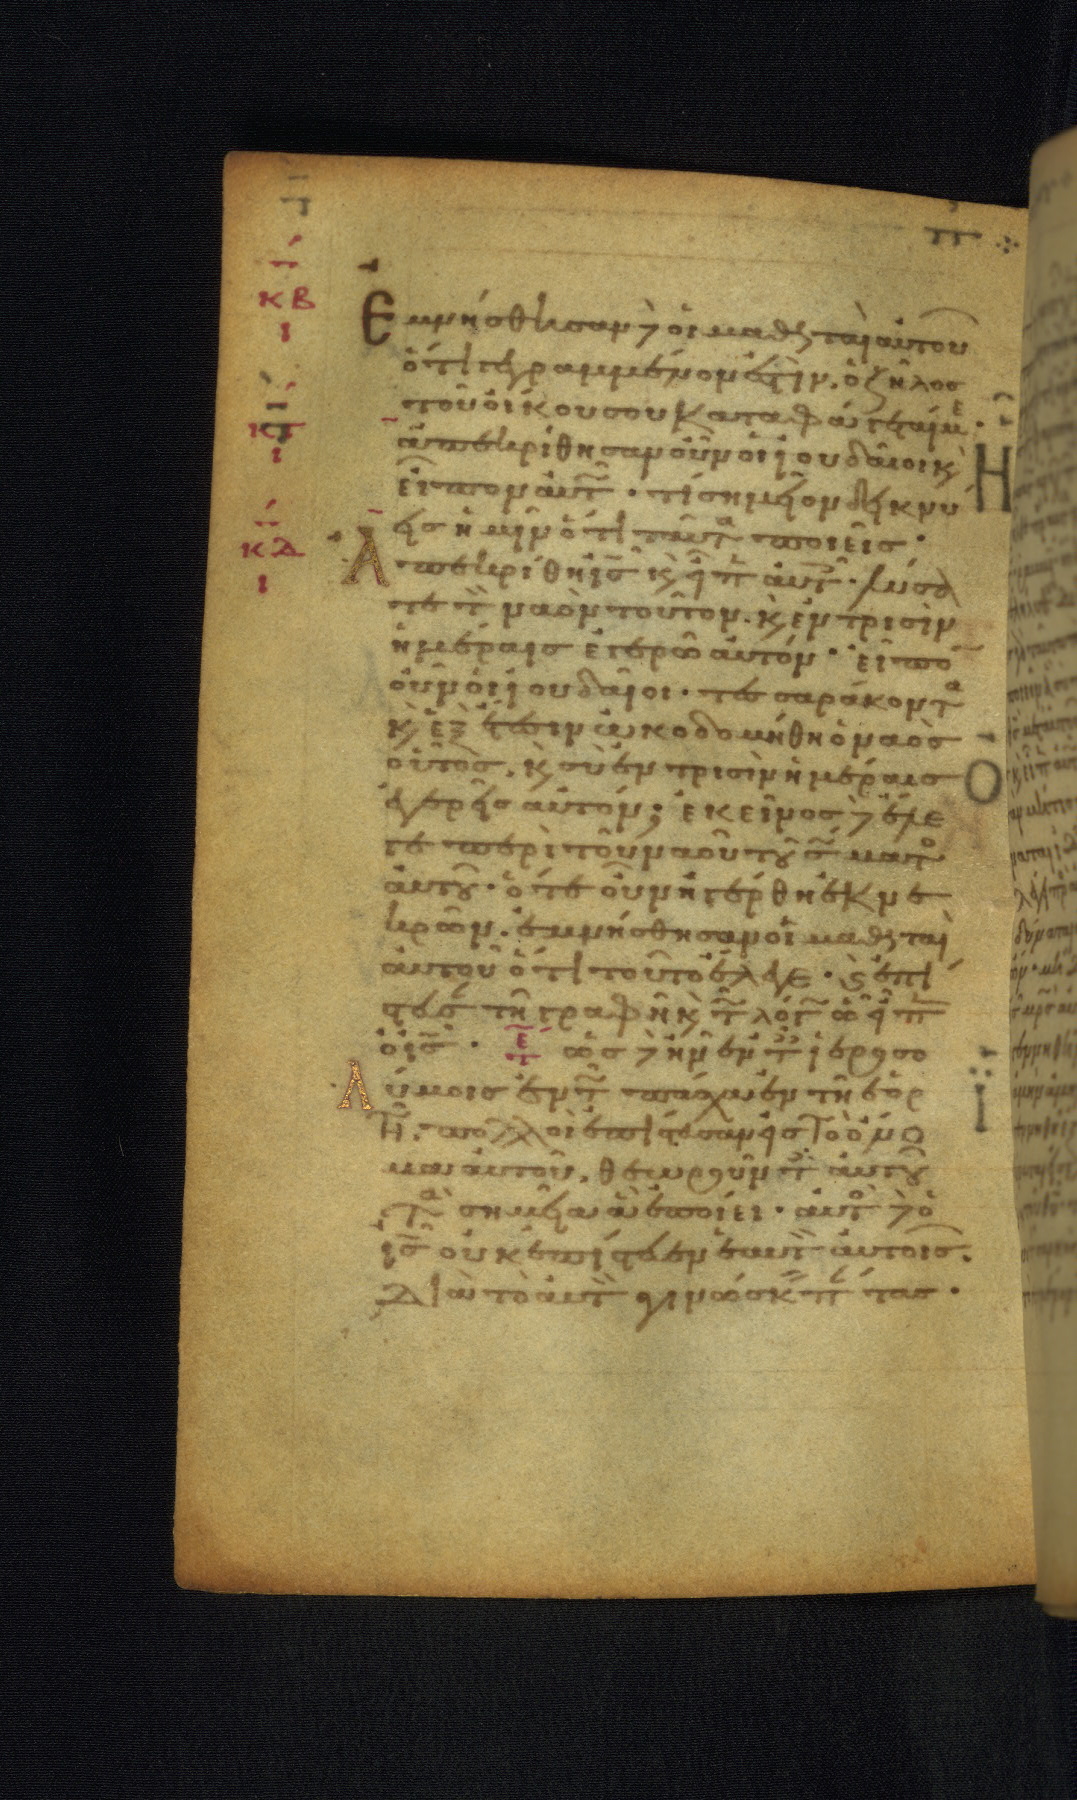 κβ
κγ
κδ
Ἐμνήσθησαν δὲ οἱ μαθηταὶ αὐτοῦ
ὅτι γεγραμμένον ἐστὶν, ὁ ζῆλος
τοῦ οἴκου σου καταφάγεταί με·
ἀπεκρίθησαν οὖν οἱ ἰουδαῖοι κ
εἶπον αὐτ῀· τί σημεῖον δεικνύ
εις ἡμῖν ὅτι ταῦτα ποιεῖς·
Ἀπεκρίθη ις κ εἶπ αὐτ῀· λύσα
τε τ ναὸν τοῦτον. κ ἐν τρισὶν
ἡμέραις ἐγερῶ αὐτόν· εἶπο
οὖν οἱ ἰουδαῖοι· τεσσαράκοντα
κ ἓξ ἔτεσιν ὠκοδομήθη ὁ ναὸς
οὗτος, κ σὺ ἐν τρισὶν ἡμέραις
ἐγερεῖς αὐτόν; ἐκεῖνος δὲ ἔλε
γε περὶ τοῦ ναοῦ τοῦ σ ματο
αὐτοῦ· ὅτε οὖν ἠγέρθη ἐκ νε
κρῶν. ἐμνήσθησαν οἱ μαθηταὶ
αὐτοῦ ὅτι τοῦτο ἔλεγε· κ ἐπί
στευσ τῇ γραφῇ κ τ λόγ ὧ εἶπ
ὁ ις· ὡς δὲ ἦν ἐν τ ἱεροσο
λύμοις ἐν τ πάσχα ἐν τῇ ἑορ
τῇ, πολλοὶ ἐπίστευσαν εἰς τὸ ὄνο
μα αὐτοῦ, θεωροῦντ αὐτοῦ
τὰ σημεῖα ἃ ἐποίει· αὐτο δὲ ὁ
ις οὐκ ἐπίστευεν ἑαυτ αὐτοῖς.
διὰ τὸ αὐτ γινώσκ π τας·
Η
Ο
Ϊ